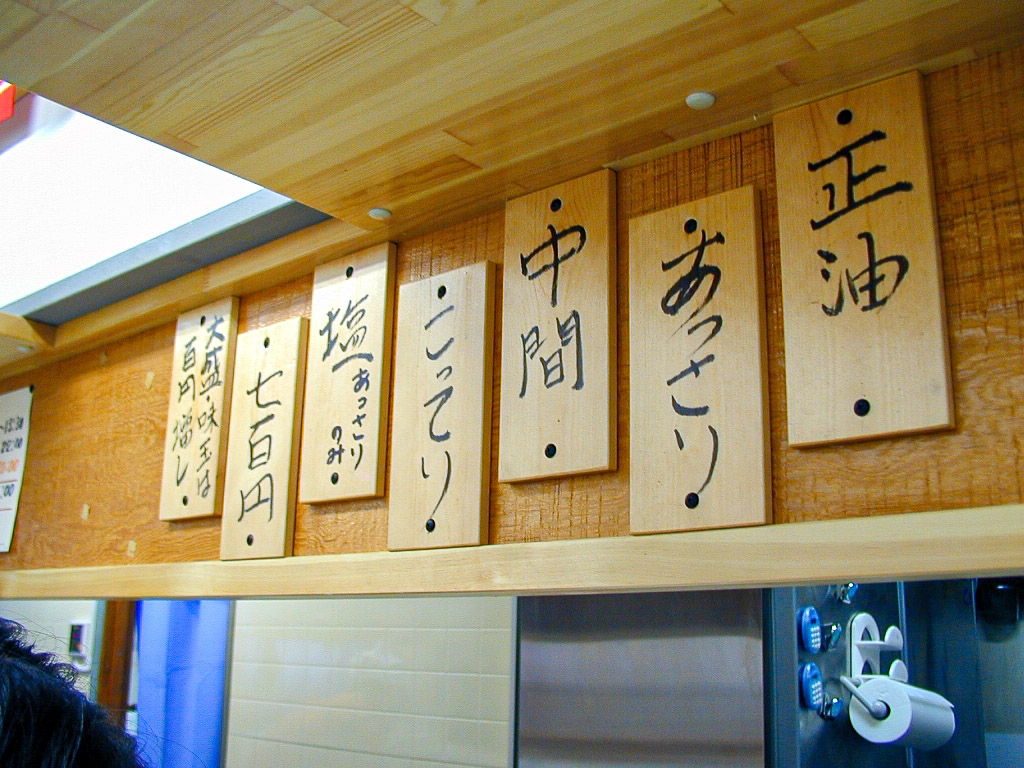 正油
あっさり
中間
こってり
塩
あっさり
のみ
七百円
大盛・味玉は
百円増し